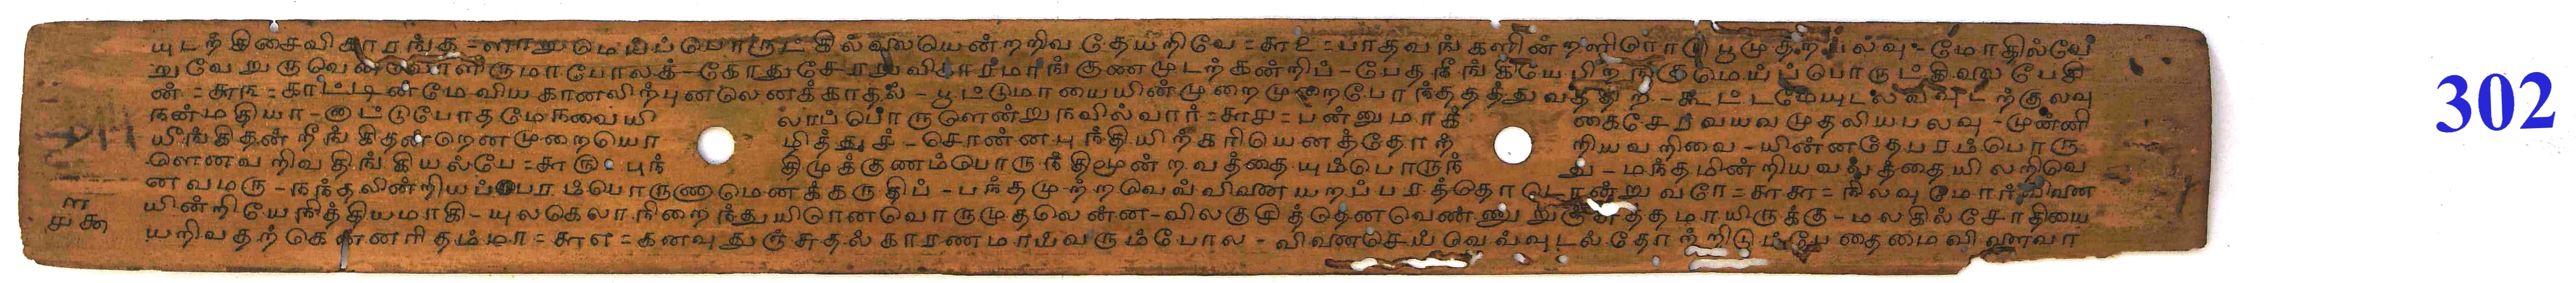 யுடற் கிசைவிகாரங்த = ளாறுமெய்ப்பொருட்கில்லையென்றறிவ தேயறிவே = சுஉ = பாதவங் களின்றளிரொடு பூமுதற் பல்வு - மோதில்வே
றுவேறுருவெ ளிருமாபோலக் - கோதுசே விகார்மாங்குணமுடற்கன்றிப் - பேதநீங்கியே மெய்ப்பொருட்கிலை பேகி
ன் = சுங = காட்டின்மேவிய கானலிற்புனலெனக்காதல் - பூட்டுமாயையின்முறைமுறைபோந்ததத்துவத்திற் - கூட்டமேயுடலவ்வுடற்குலவு
நன்மதியா - னாட்டுபோதமேநவையி லாப்பொருளென்றுநவில்வார் = சுச = பன்னுமாகி கைசேர்வயவமுதலியபலவு - முன்னி
யீங்கிதன் நீங்கிதன்றெனமுறையொ ழித்துச் - சொன்னபுந்தியிற்கரியெனத்தோற் றியவறிவை - யின்னதேபரம்பொரு
ளெனவறிவதிங்கியல்பே = சுரு = புந் திமுக்குணம்பொருந்திமூன்றவத்தையும்பொருந் து - மந்தமின்றியவவத்தையிலறிவெ
னவமரு - நந்தலின்றியப்பரம்பொருணாமெனக்கருதிப் - பந்தமுற்றவெவ்வினையறப்பரத்தொடொன்றுவரே = சுசு = நிலவுமோர்வினை
யின்றியேநித்தியமாகி - யுலகெலாநிறைந்துயிரெனவொருமுதலென்ன - விலகுசித்தெனவெண்ணுறுஞ்சுத்தமாயிருக்கு - மலகில்சோதியை
யறிவதற்கென்னரிதம்மா = சுஎ = கனவுதுஞ்சுதல்காரணமாய்வரும்போல - வினைசெய்வெவ்வுடல்தோற்றிடும்பேதைமைவினைவா
302